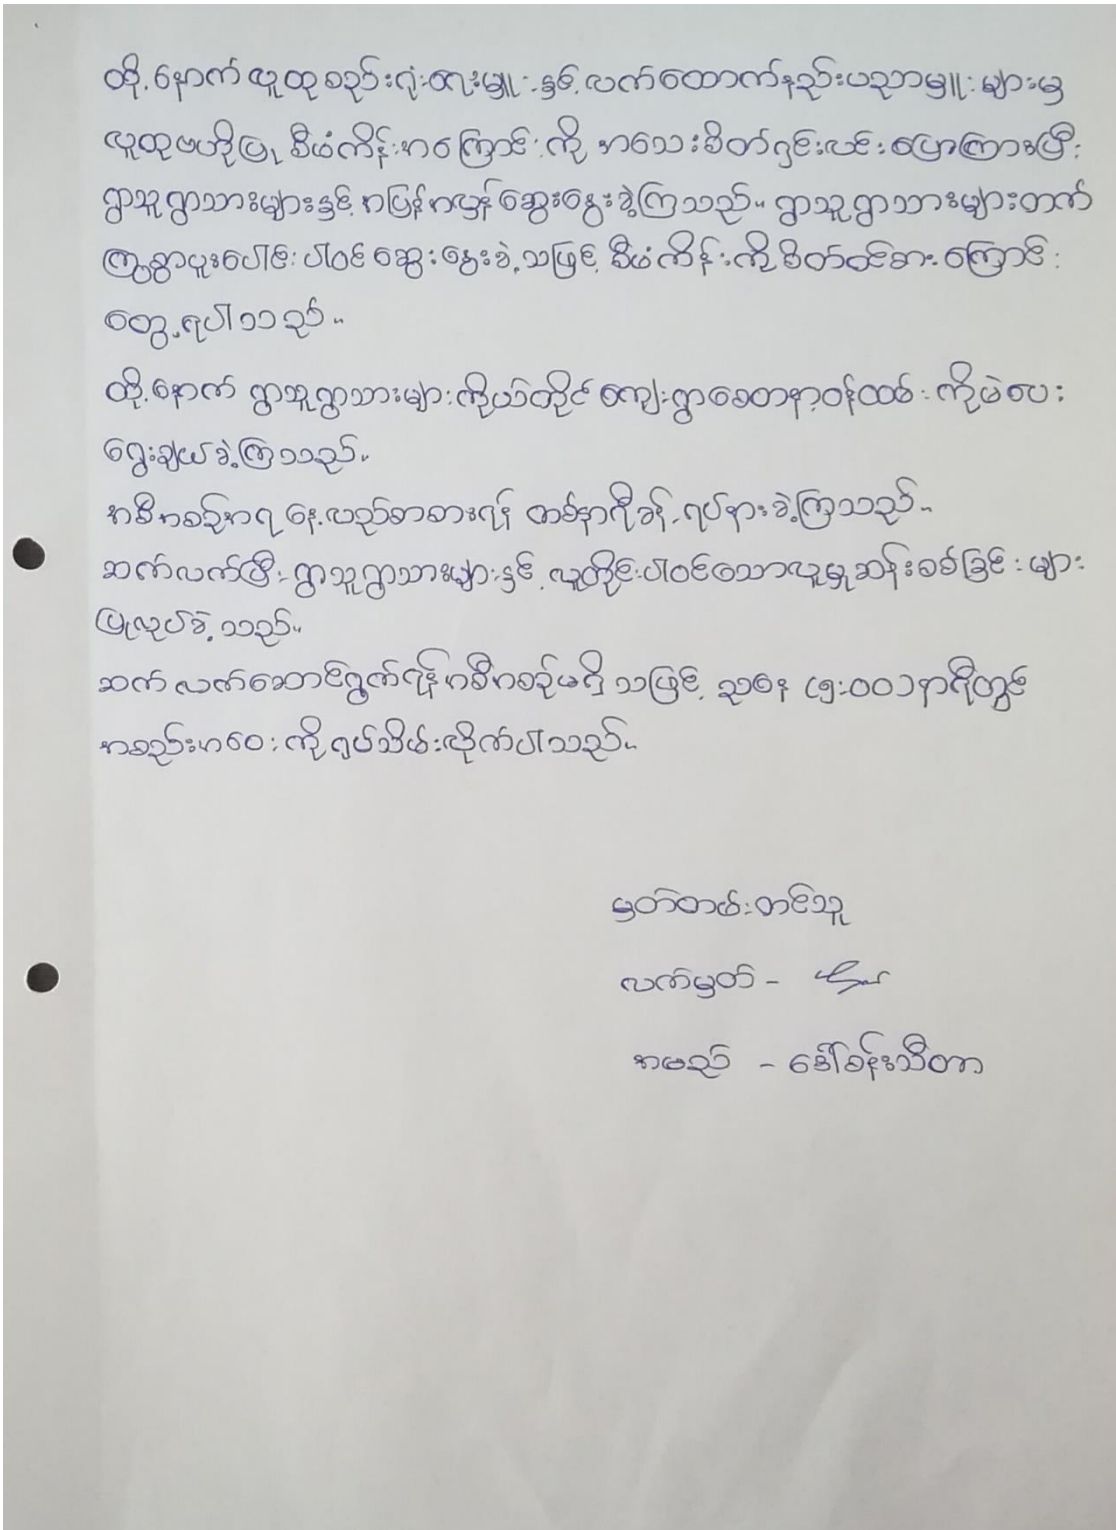 ထို့နောက် လူထုစည်းရုံးရေးမှူးနှင့် လက်ထောက်နည်းပညာမှူးများမှ
လူထုဗဟိုပြု စီမံကိန်းအကြောင်းကို အသေးစိတ်ရှင်းလင်းပြောကြားပြီး
ရွာသူရွာသားများနှင့် အပြန်အလှန်ဆွေးနွေးခဲ့ကြသည်။ ရွာသူရွာသားများတက်
ကြွစွာပူးပေါင်းပါဝင်ဆွေးနွေးခဲ့သဖြင့် စီမံကိန်းကိုစိတ်ဝင်စားကြောင်း
တွေ့ရပါသည်။
ထို့နောက် ရွာသူရွာသားများကိုယ်တိုင် ကျေးရွာစေတနာ့ဝန်ထမ်းကိုမဲပေး
ရွေးချယ်ခဲ့ကြသည်။
အစီအစဉ်အရ နေ့လည်စာစားရန် တစ်နာရီခန့်ရပ်နားခဲ့ကြသည်။
ဆက်လက်ပြီး ရွာသူရွာသားများနှင့် လူတိုင်းပါဝင်သောလူမှုဆန်းစစ်ခြင်းများ
ပြုလုပ်ခဲ့သည်။
ဆက်လက်ဆောင်ရွက်ရန်အစီအစဉ်မရှိသဖြင့် ညနေ (၅:၀၀)နာရီတွင်
အစည်းအဝေးကိုရုပ်သိမ်းလိုက်ပါသည်။
မှတ်တမ်းတင်သူ
လက်မှတ် -
အမည် - ဒေါ်ခန်းသီတာ